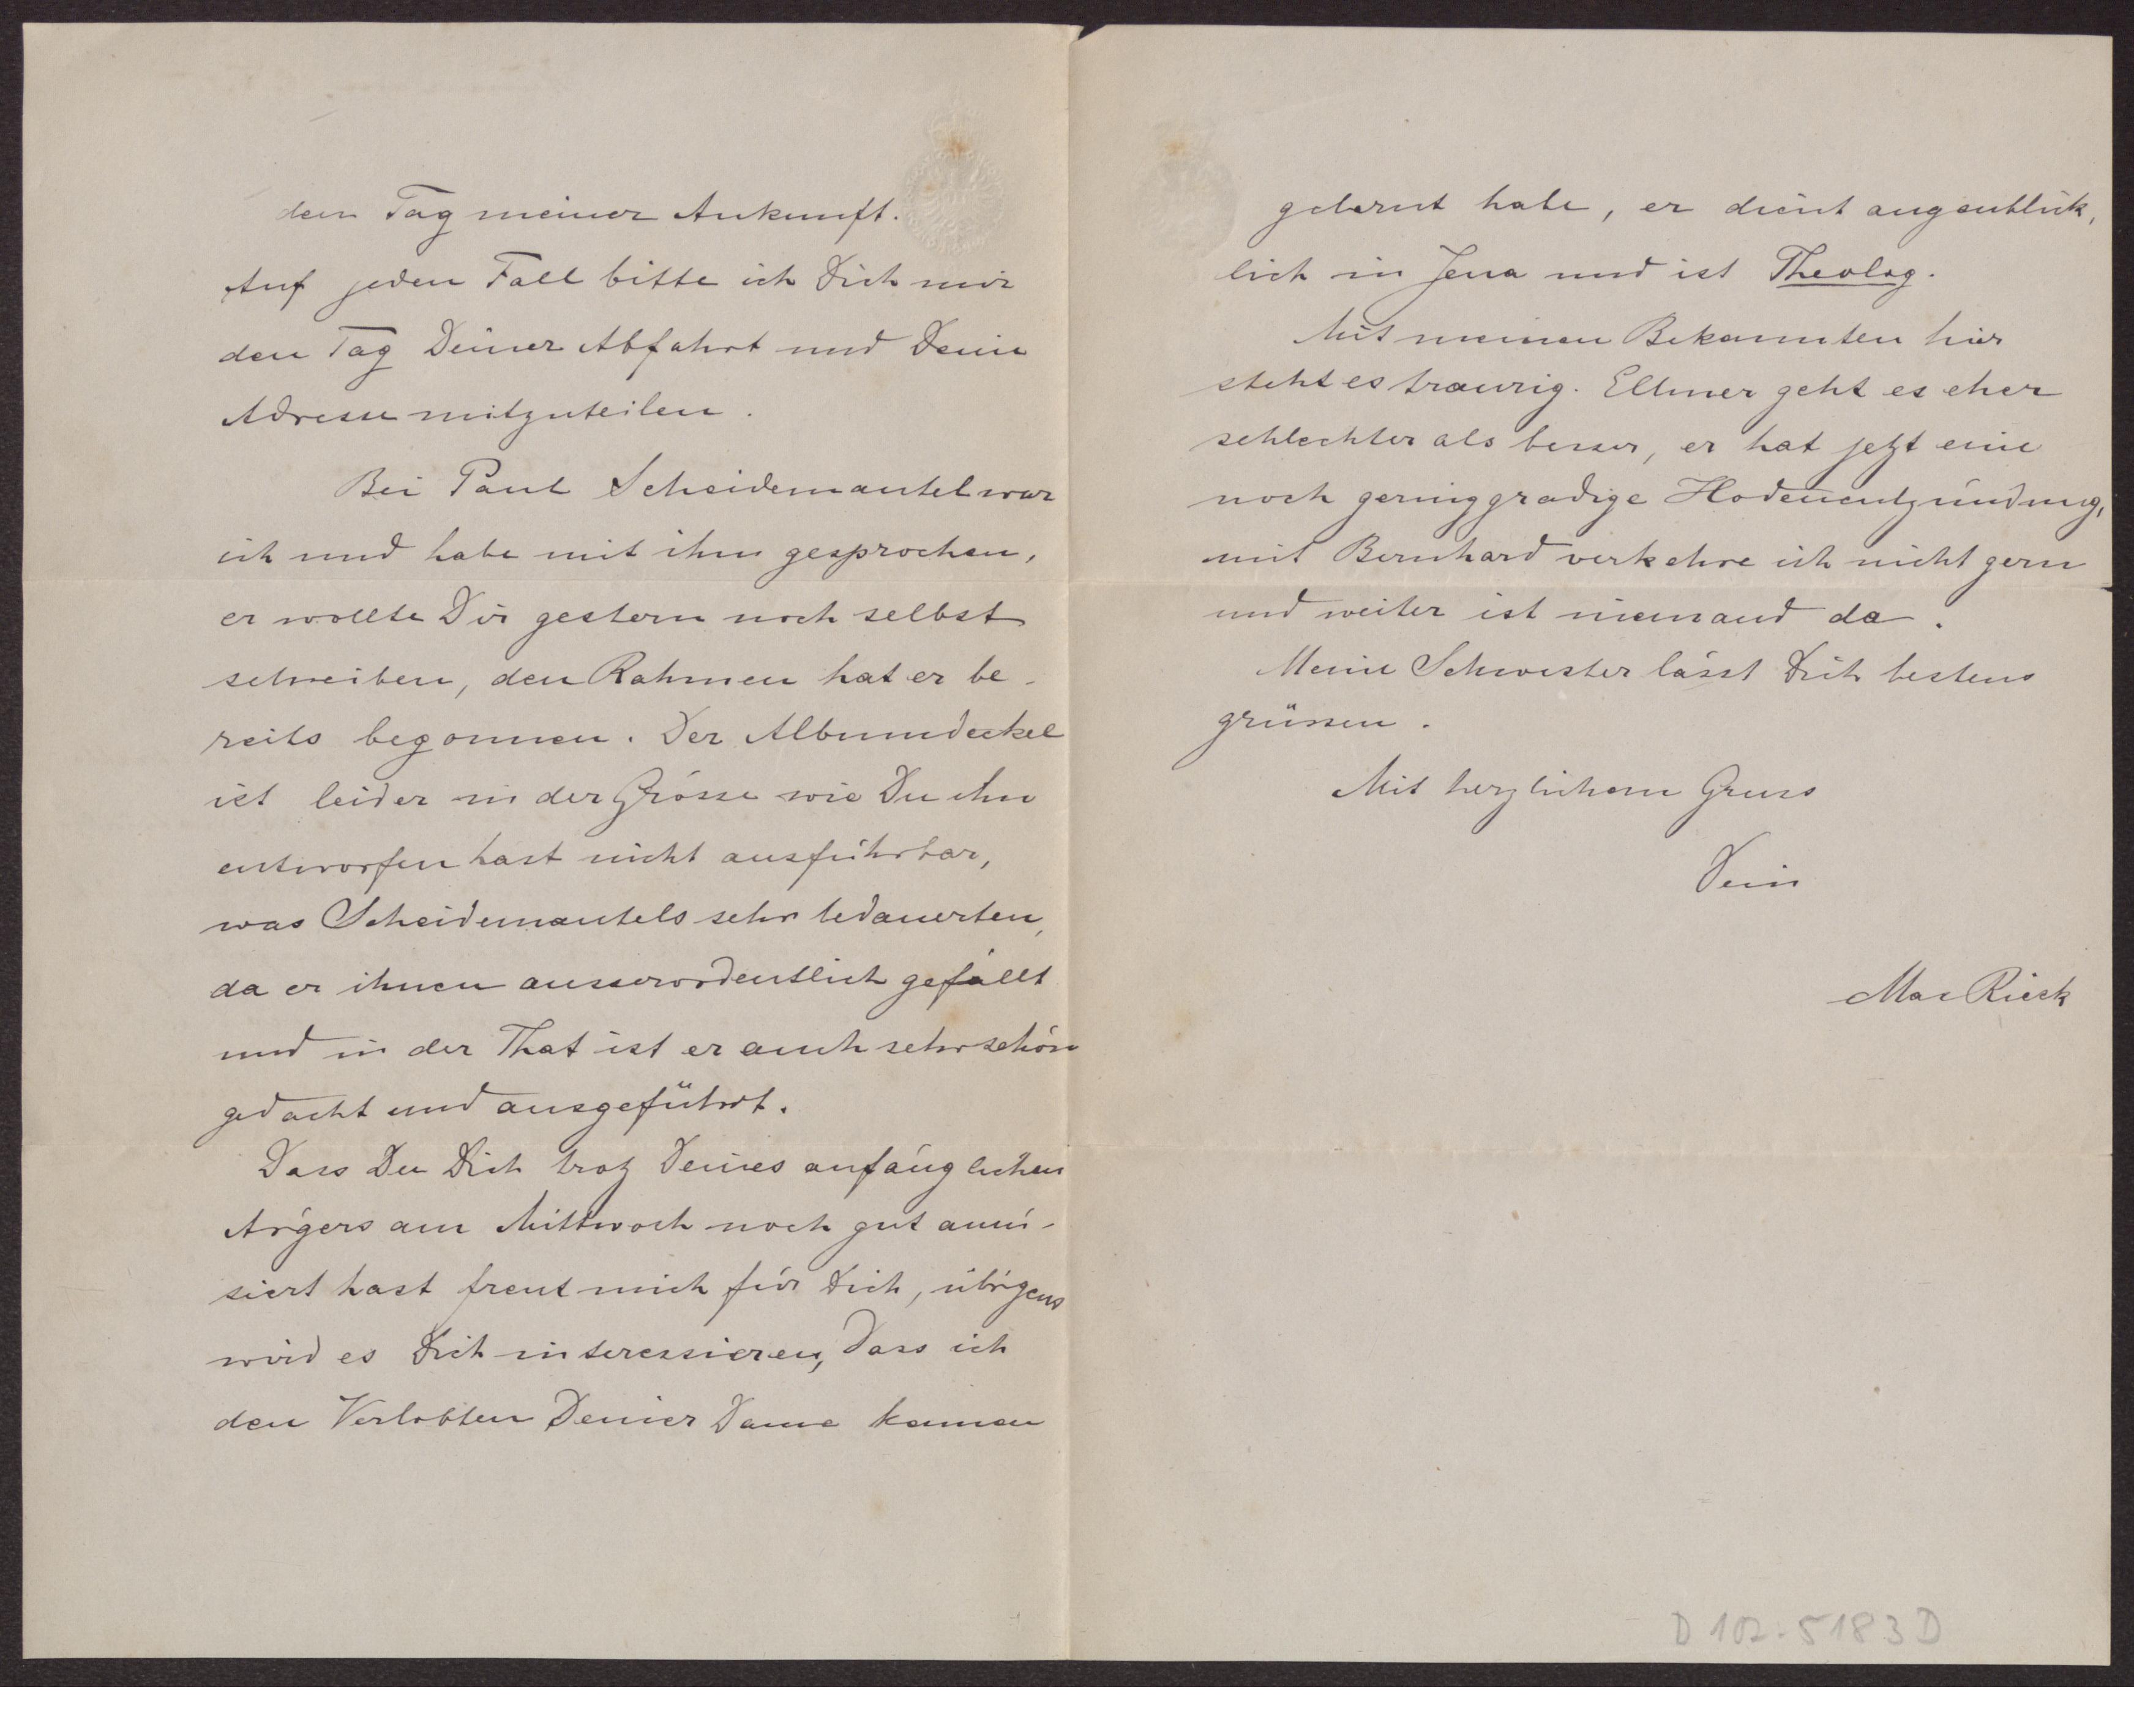 den Tag meiner Ankunft.
Auf jeden Fall bitte ich Dich mir
den Tag Deiner Abfahrt und Deine
Adresse mitzuteilen.
Bei Paul Scheidemantel war
ich und habe mit ihm gesprochen,
er wollte Dir gestern noch selbst
schreiben, den Rahmen hat er be-
reits begonnen. Der Albumdeckel
ist leider in der Grösse wie Du ihn
entworfen hast nicht ausführbar,
was Scheidemantels sehr bedauerten,
da er ihnen ausserordentlich gefällt
und in der That ist er auch sehr schön
gedacht und ausgeführt.
Dass Du Dich trotz Deines anfänglichen
Ärgers am Mittwoch noch gut amü-
siert hast freut mich für Dich, übrigens
wird es Dich interessieren, dass ich
den Verlobten Deiner Dame kennen
gelernt habe, er dient augenblick,
lich in Jena und ist Theolog.
Mit meinen Bekannten hier
steht es traurig. Ellmer geht es eher
schlechter als besser, er hat jetzt eine
noch geringgradige Hodenentzündung,
mit Bernhard verkehre ich nicht gern
und weiter ist niemand da.
Meine Schwester lässt Dich bestens
grüssen.
Mit herzlichem Gruss
Dein
Max Rieck
D 102-5183 D